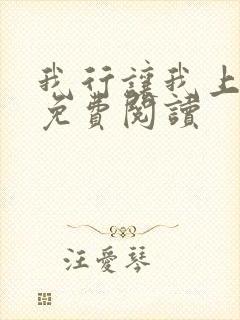 我行讓我上
免費閱讀
汪愛琴